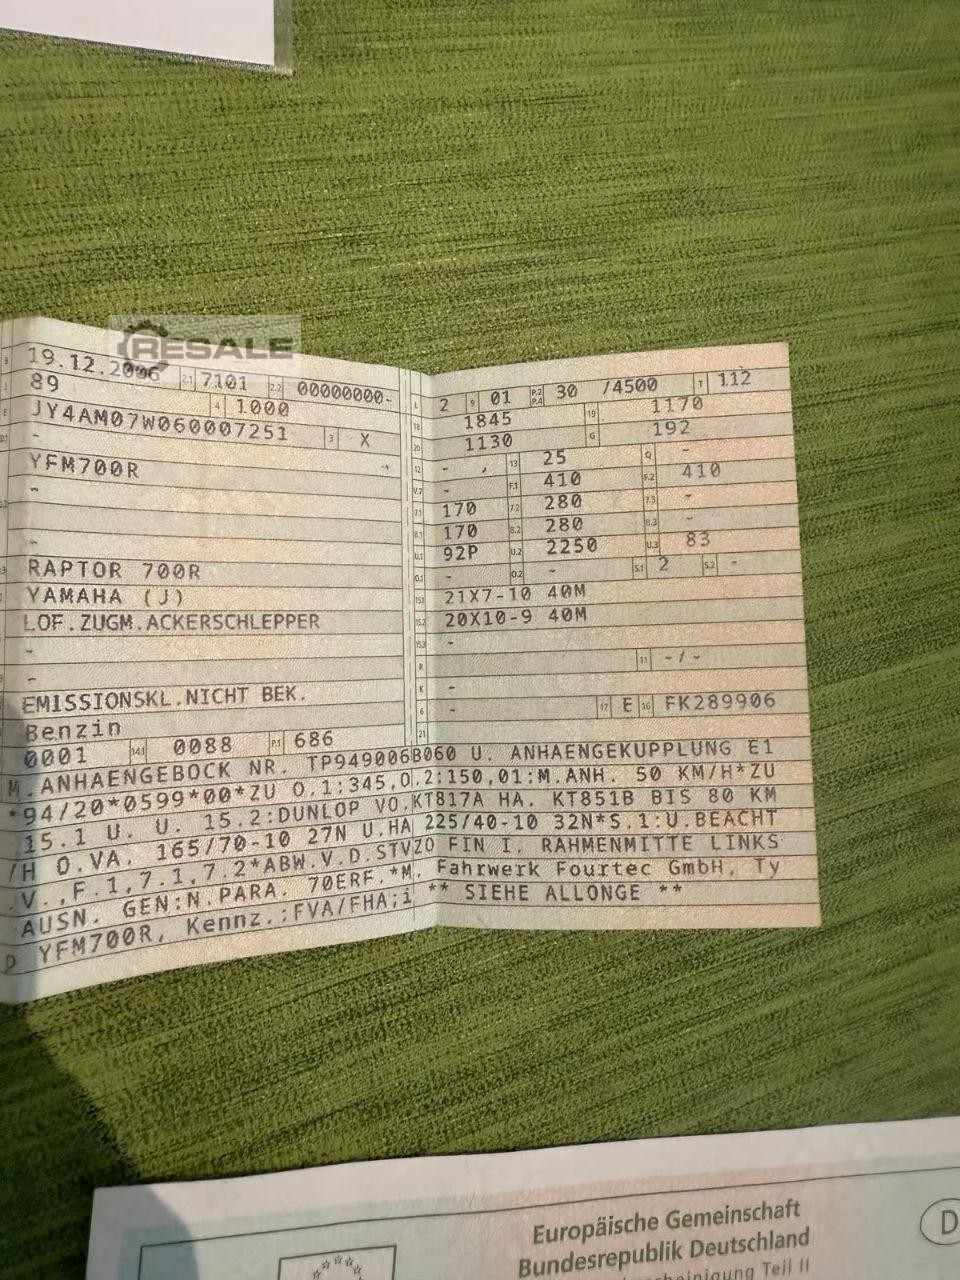 RESALE
B 19.12.2006 2.1 7101 2.2 00000000-
J 89 4 1000
E JY4AM07W060007251 3 X
D.1 -
YFM700R -
-
D.2
-
D.3 RAPTOR 700R
2 YAMAHA (J)
LOF.ZUGM.ACKERSCHLEPPER
-
-
EMISSIONSKL.NICHT BEK.
Benzin
0001 14.1 0088 P.1 686
L 2 9 01 P.2 P.4 30 /4500 T 112
18 1845 19 1170
20 1130 G 192
12 - 13 25 Q -
V.7 - F.1 410 F.2 410
7.1 170 7.2 280 7.3 -
8.1 170 8.2 280 8.3 -
U.1 92P U.2 2250 U.3 83
O.1 - O.2 - S.1 2 S.2 -
15.1 21X7-10 40M
15.2 20X10-9 40M
15.3 -
R 11 -/-
K -
6 - 17 E 16 FK289906
21
M.ANHAENGEBOCK NR. TP949006B060 U. ANHAENGEKUPPLUNG E1
*94/20*0599*00*ZU O.1:345,O.2:150,01:M.ANH. 50 KM/H*ZU
15.1 U. U. 15.2:DUNLOP VO.KT817A HA. KT851B BIS 80 KM
/H O.VA. 165/70-10 27N U.HA 225/40-10 32N*S.1:U.BEACHT
.V.,F.1,7.1,7.2*ABW.V.D.STVZO FIN I. RAHMENMITTE LINKS
AUSN. GEN:N.PARA. 70ERF.*M. Fahrwerk Fourtec GmbH, Ty
P YFM700R, Kennz.:FVA/FHA;i ** SIEHE ALLONGE **
Europäische Gemeinschaft
D
Bundesrepublik Deutschland
Teil II